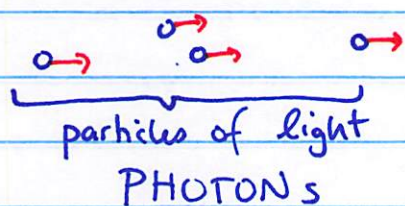 particles of light
PHOTONs